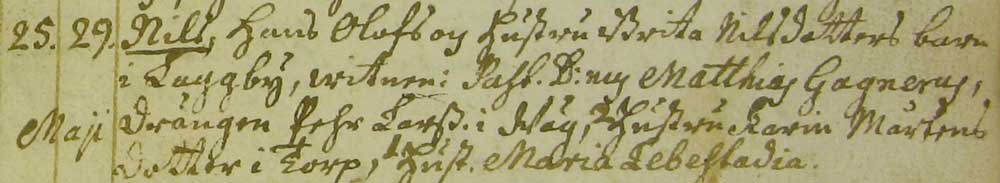 25. 29. Nils, Hans Olofs og Hustru Brita Nilsdotters barn
i Taggby, vitnen: Past. D:nus Matthias Gagnerus,
Maji drängen Pehr Larss. i Wåg, Hustru Karin Mårtens
dotter i Torp, Hust. Maria Lebestadia.